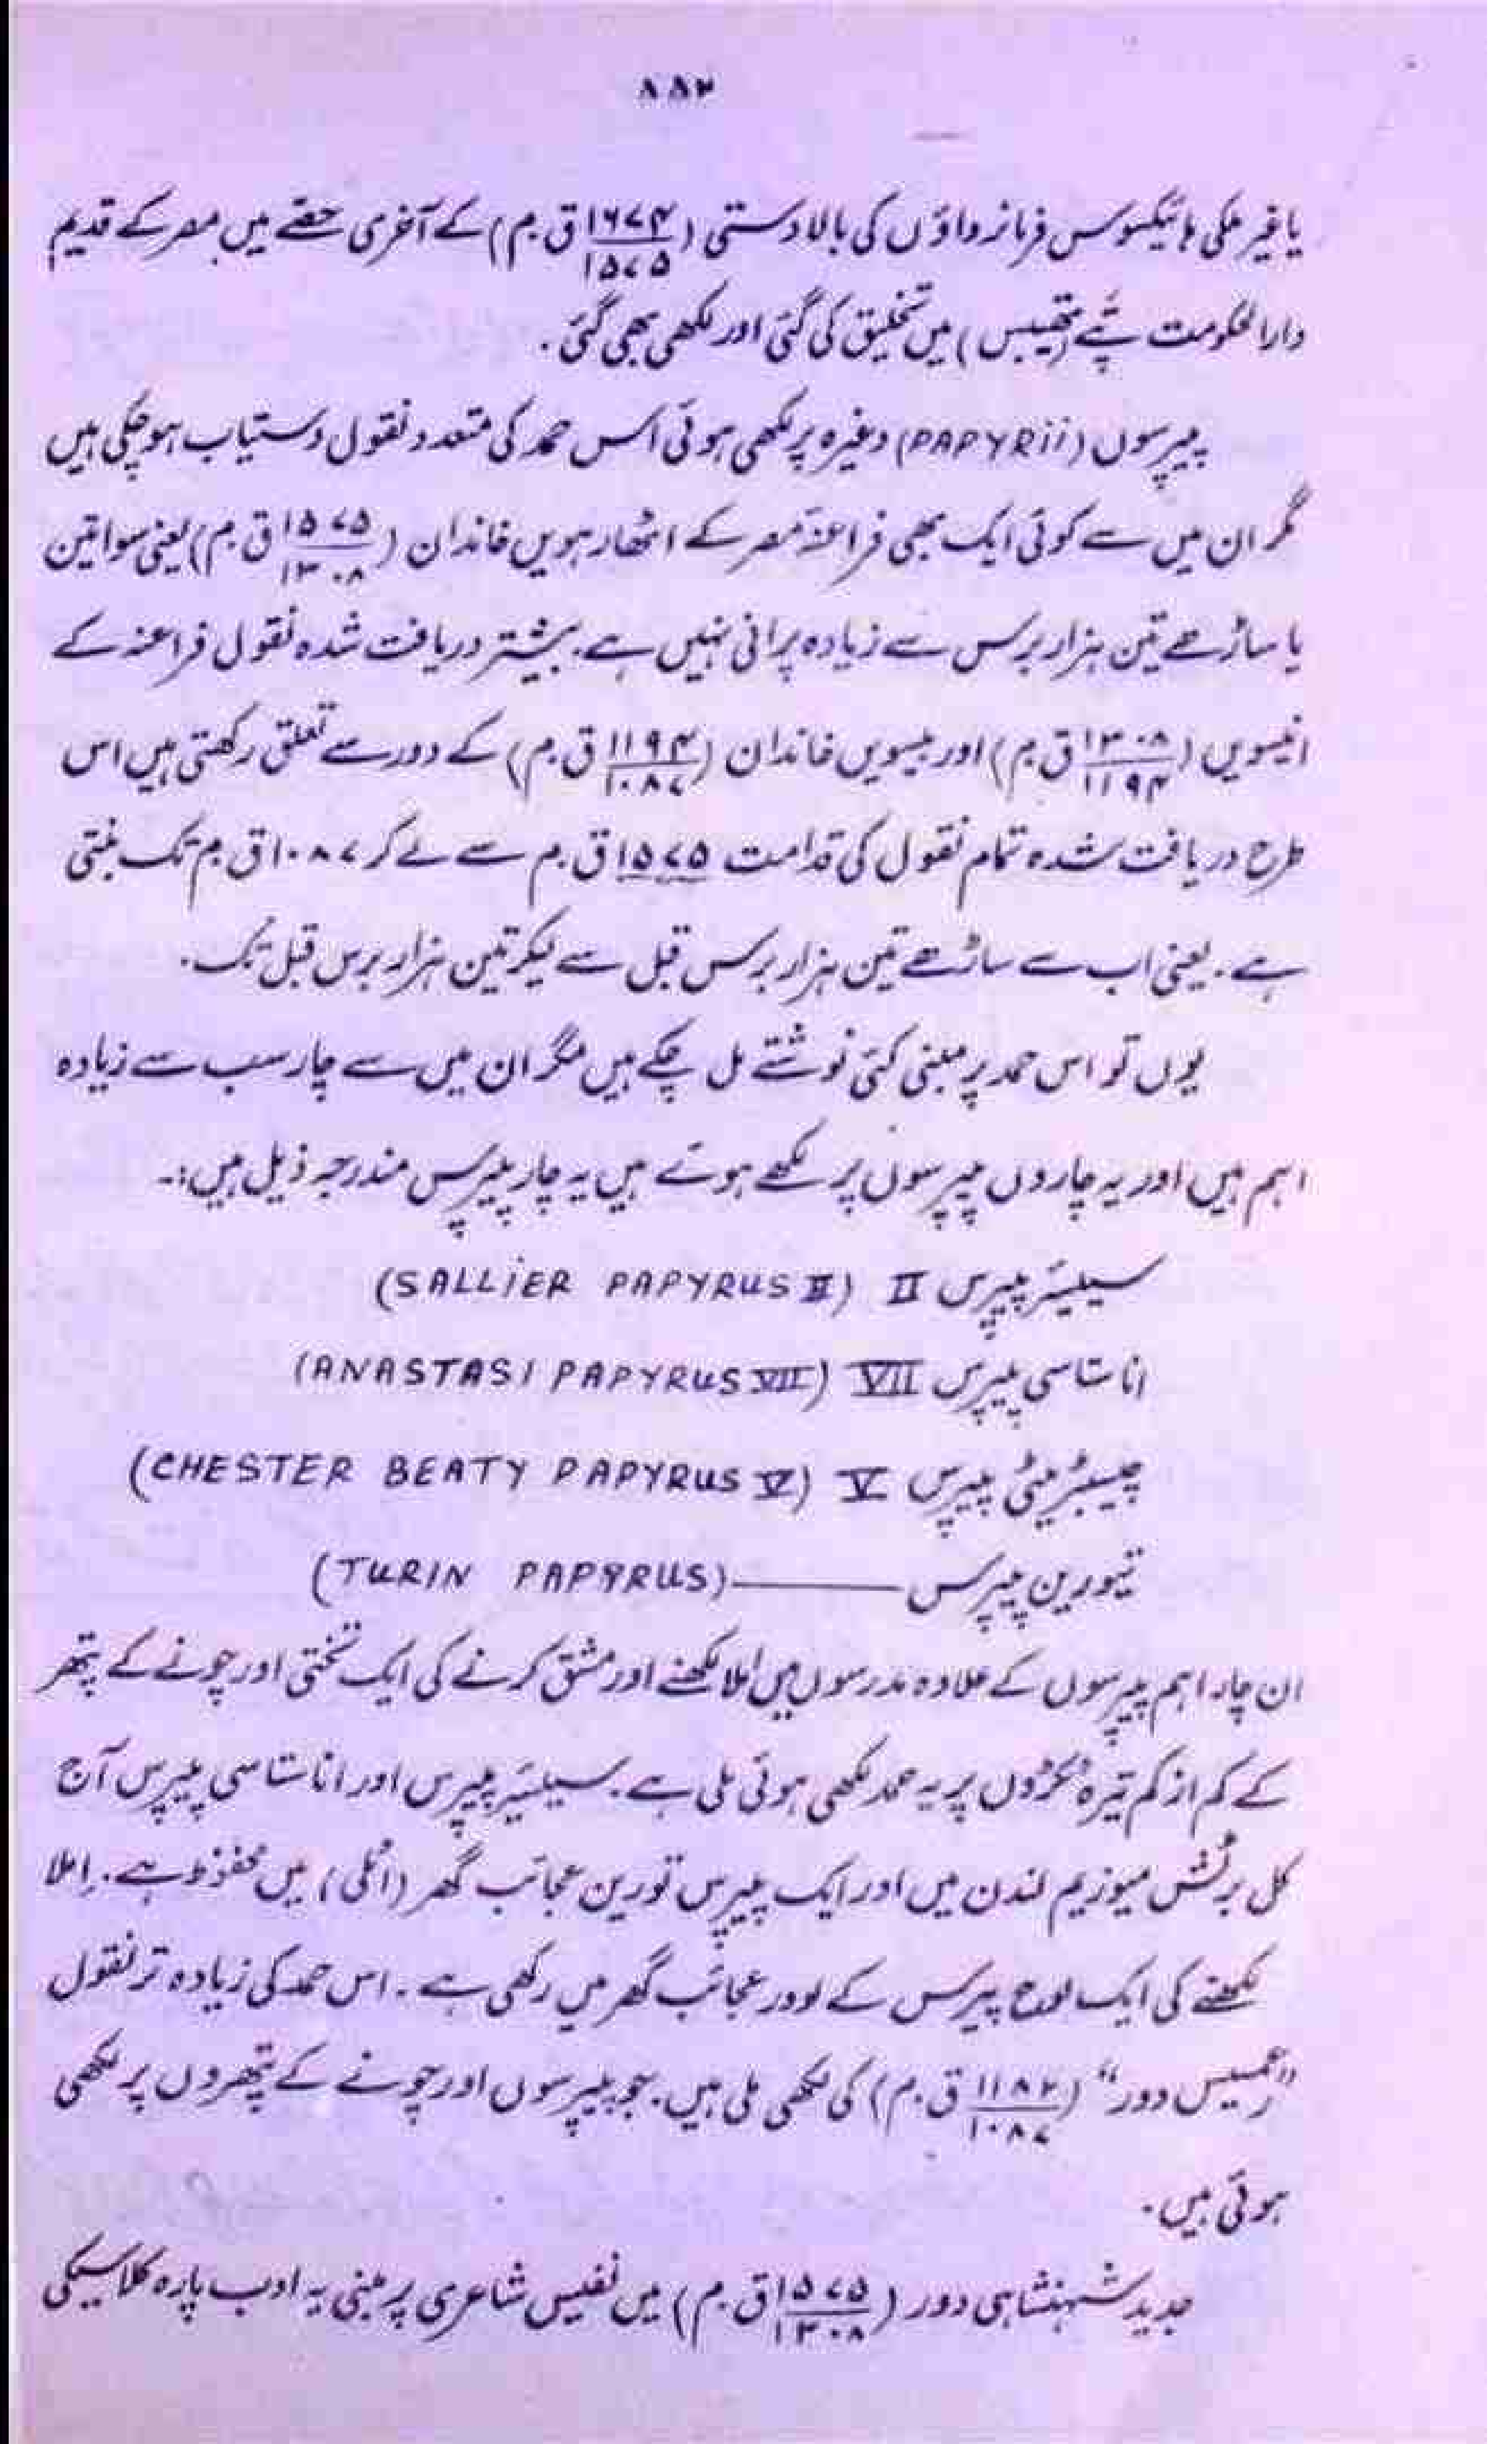 ۸۵۲
یا غیر ملکی ہائیکسوس فرمانرواؤں کی بالادستی (۱۶۷۴/۱۵۷۵ ق.م) کے آخری حصّے میں مصر کے قدیم
دارالحکومت پتے (تھیبس) میں تخلیق کی گئی اور لکھی بھی گئی.
پیپرسوں (PAPYRii) وغیرہ پر لکھی ہوئی اس حمد کی متعدد نقول دستیاب ہو چکی ہیں
مگر ان میں سے کوئی ایک بھی فراعنۂ مصر کے اٹھارہویں خاندان (۱۵۷۵/۱۳۰۸ ق.م) یعنی سوا تین
یا ساڑھے تین ہزار برس سے زیادہ پرانی نہیں ہے. بیشتر دریافت شدہ نقول فراعنہ کے
انیسویں (۱۳۰۸/۱۱۹۴ ق.م) اور بیسویں خاندان (۱۱۹۴/۱۰۸۷ ق.م) کے دور سے تعلق رکھتی ہیں اس
طرح دریافت شدہ تمام نقول کی قدامت ۱۵۷۵ ق.م سے لے کر ۱۰۸۷ ق.م تک بنتی
ہے. یعنی اب سے ساڑھے تین ہزار برس قبل سے لیکر تین ہزار برس قبل تک.
یوں تو اس حمد پر مبنی کئی نوشتے مل چکے ہیں مگر ان میں سے چار سب سے زیادہ
اہم ہیں اور یہ چاروں پیپرسوں پر لکھے ہوئے ہیں یہ چار پیپرس مندرجہ ذیل ہیں:-
سیلیئر پیپرس II (SALLiER PAPYRUS II)
اناستاسی پیپرس VII (ANASTASI PAPYRUS VII)
چیسٹر بیٹی پیپرس V (CHESTER BEATY PAPYRUS V)
تیورین پیپرس ——— (TURIN PAPYRUS)
ان چار اہم پیپرسوں کے علاوہ مدرسوں میں املا لکھنے اور مشق کرنے کی ایک تختی اور چونے کے پتھر
کے کم از کم تیرہ ٹکڑوں پر یہ حمد لکھی ہوئی ملی ہے. سیلیئر پیپرس اور اناستاسی پیپرس آج
کل برٹش میوزیم لندن میں اور ایک پیپرس تورین عجائب گھر (اٹلی) میں محفوظ ہے. اِملا
لکھنے کی ایک لوح پیرس کے لوور عجائب گھر میں رکھی ہے. اس حمد کی زیادہ تر نقول
"رعمسیس دور" (۱۱۸۲/۱۰۸۷ ق.م) کی لکھی ملی ہیں. جو پیپرسوں اور چونے کے پتھروں پر لکھی
ہوئی ہیں.
جدید شہنشاہی دور (۱۵۷۵/۱۳۰۸ ق.م) میں نفیس شاعری پر مبنی یہ ادب پارہ کلاسیکی